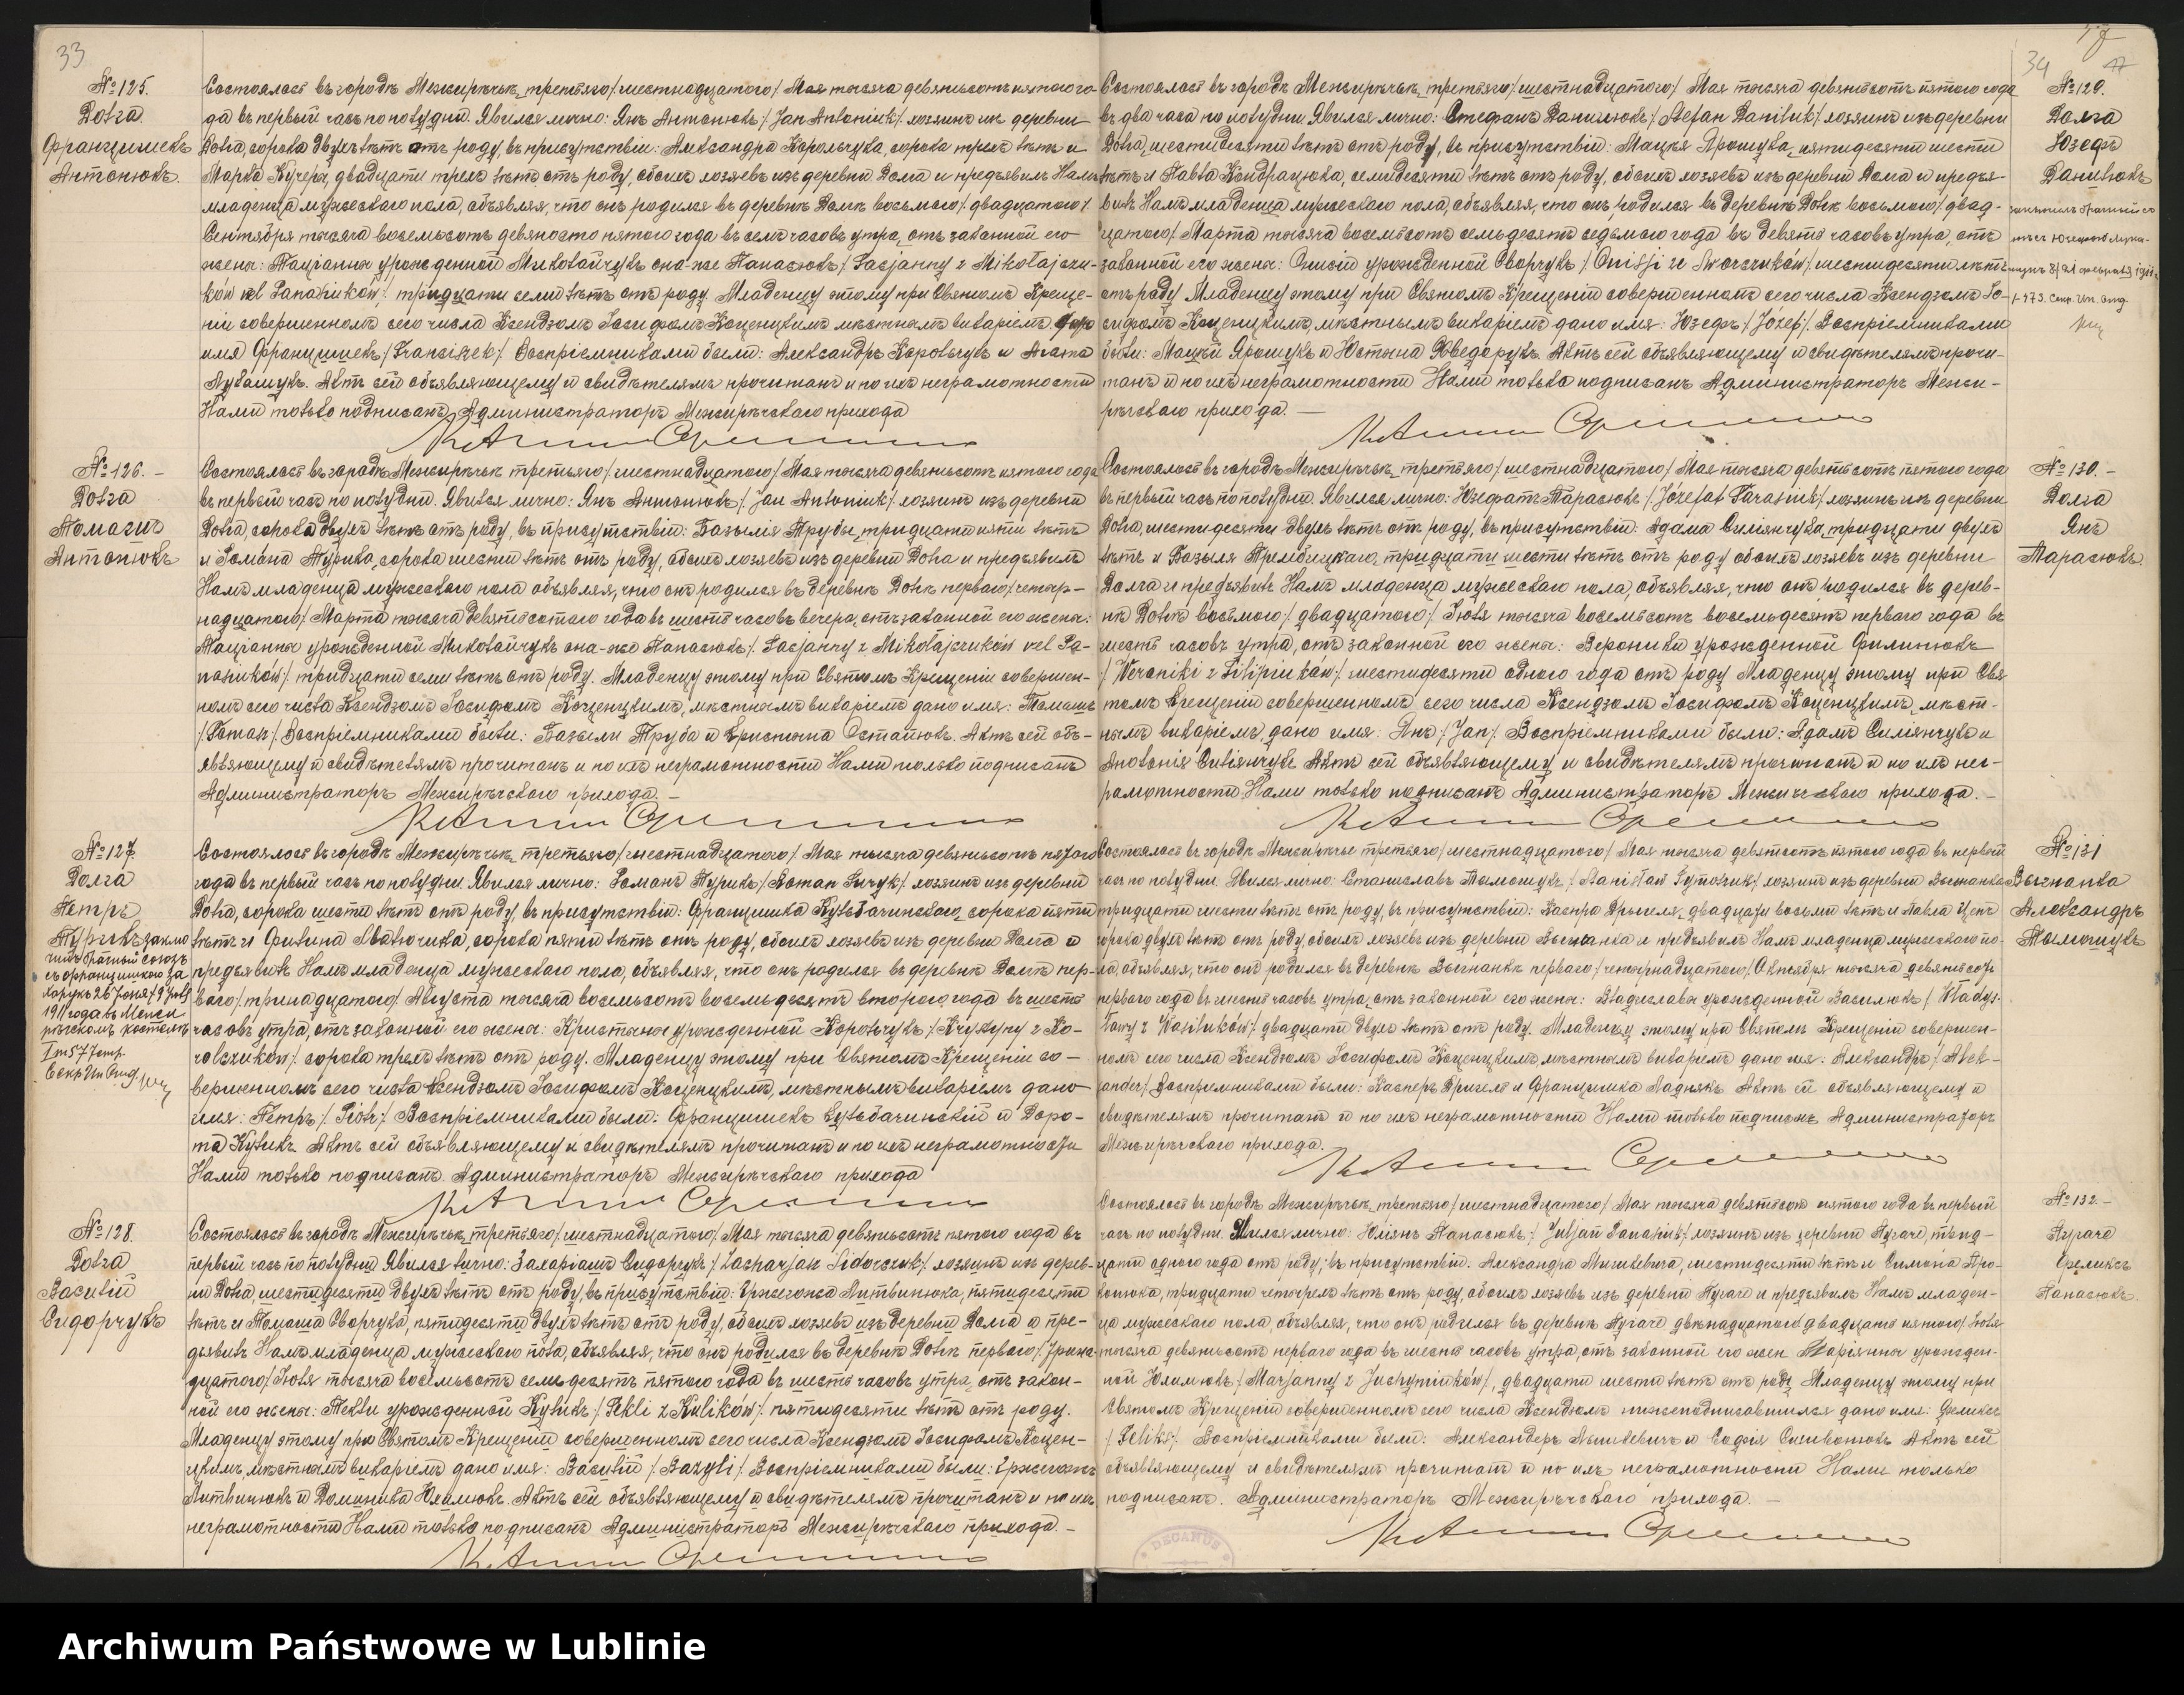 33
№ 125.
Долга.
Францишекъ
Антонюкъ.
Состоялось въ городѣ Межирѣчьѣ, третьяго /:шестнадцатого:/ Мая тысяча девятьсотъ пятого го-
да въ первый часъ по полудни. Явился лично: Янъ Антонюкъ /:Jan Antoniuk:/ хозяинъ изъ деревни
Долга, сорока двухъ лѣтъ отъ роду, въ присутствіи: Александра Корольчука, сорока трехъ лѣтъ и
Марка Кучера, двадцати трехъ лѣтъ отъ роду, обоихъ хозяевъ изъ деревни Долга и предъявилъ Намъ
младенца мужескаго пола, объявляя, что онъ родился въ деревнѣ Долгѣ восьмого /:двадцатого:/
Сентября тысяча восемьсотъ девяносто пятого года въ семь часовъ утра, отъ законной его
жены: Таціанны урожденной Миколайчукъ она-же Панасюкъ /:Tacjanny z Mikołajczu-
ków vel Panasiuków:/ тридцати семи лѣтъ отъ роду. Младенцу этому при Святомъ Креще-
ніи совершенномъ сего числа Ксендзомъ Іосифомъ Коценцкимъ мѣстнымъ викаріемъ дано
имя Францишекъ /:Franciszek:/. Воспріемниками были: Александръ Корольчукъ и Агата
Лукашукъ. Актъ сей объявляющему и свидѣтелямъ прочитанъ и по ихъ неграмотности
Нами только подписанъ. Администраторъ Межирѣчскаго прихода
№ 126. –
Долга
Томашъ
Антонюкъ
Состоялось въ городѣ Межирѣчьѣ третьяго /:шестнадцатого:/ Мая тысяча девятьсотъ пятого года
въ первый часъ по полудни. Явился лично: Янъ Антонюкъ /:Jan Antoniuk:/ хозяинъ изъ деревни
Долга, сорока двухъ лѣтъ отъ роду, въ присутствіи: Базылія Трубы, тридцати пяти лѣтъ
и Романа Турика, сорока шести лѣтъ отъ роду, обоихъ хозяевъ изъ деревни Долга и предъявилъ
Намъ младенца мужескаго пола объявляя, что онъ родился въ деревнѣ Долгѣ перваго /:четыр-
надцатого:/ Марта тысяча девятьсотаго года въ шесть часовъ вечера, отъ законной его жены:
Таціанны урожденной Миколайчукъ она-же Панасюкъ /:Tacjanny z Mikołajczuków vel Pa-
nasiuków:/ тридцати семи лѣтъ отъ роду. Младенцу этому при Святомъ Крещеніи совершен-
номъ сего числа Ксендзомъ Іосифомъ Коценцкимъ, мѣстнымъ викаріемъ дано имя: Томашъ
/:Tomasz:/. Воспріемниками были: Базыли Труба и Кристына Остапюкъ. Актъ сей объ-
являющему и свидѣтелямъ прочитанъ и по ихъ неграмотности Нами только подписанъ
Администраторъ Межирѣчскаго прихода –
№ 127.
Долга
Петръ
Турикъ заклю
чилъ брачный союзъ
съ Францишкою За
харукъ 26 Іюня / 9 Іюля
1911 года въ Межи
рѣчскомъ костелѣ
Состоялось въ городѣ Межирѣчьѣ, третьяго /:шестнадцатого:/ Мая тысяча девятьсотъ пятого
года въ первый часъ по полудни. Явился лично: Романъ Турикъ /:Roman Turyk:/ хозяинъ изъ деревни
Долга, сорока шести лѣтъ отъ роду, въ присутствіи: Францишка Кульбачинскаго, сорока пяти
предъявилъ Намъ младенца мужескаго пола, объявляя, что онъ родился въ деревнѣ Долгѣ пер-
ваго /:тринадцатого:/ Августа тысяча восемьсотъ восемьдесятъ второго года въ шесть
часовъ утра, отъ законной его жены: Кристыны урожденной Корольчукъ /:Krystyny z Ko-
rolczuków:/ сорока трехъ лѣтъ отъ роду. Младенцу этому при Святомъ Крещеніи со-
вершенномъ сего числа Ксендзомъ Іосифомъ Коценцкимъ, мѣстнымъ викаріемъ дано
имя: Петръ /:Piotr:/. Воспріемниками были: Францишекъ Кульбачинскій и Доро-
та Куликъ. Актъ сей объявляющему и свидѣтелямъ прочитанъ и по ихъ неграмотности
Нами только подписанъ. Администраторъ Межирѣчскаго прихода
№ 128.
Долга
Василій
Сидорчукъ
Состоялось въ городѣ Межирѣчьѣ, третьяго /:шестнадцатого:/ Мая тысяча девятьсотъ пятого года въ
первый часъ по полудни. Явился лично: Захаріашъ Сидорчукъ /:Zacharjasz Sidorczuk:/ хозяинъ изъ дерев-
ни Долга, шестидесяти двухъ лѣтъ отъ роду, въ присутствіи: Гржегожа Литвинюка, пятидесяти
лѣтъ и Томаша Сворчука, пятидесяти двухъ лѣтъ отъ роду, обоихъ хозяевъ изъ деревни Долга и пре-
дъявилъ Намъ младенца мужескаго пола, объявляя, что онъ родился въ деревнѣ Долгѣ перваго /:трина-
дцатого:/ Іюля тысяча восемьсотъ семьдесятъ пятого года въ шесть часовъ утра, отъ закон-
ной его жены: Текли урожденной Куликъ /:Tekli z Kulików:/ пятидесяти лѣтъ отъ роду.
Младенцу этому при Святомъ Крещеніи совершенномъ сего числа Ксендзомъ Іосифомъ Коцен-
цкимъ, мѣстнымъ викаріемъ дано имя: Василій /:Bazyli:/. Воспріемниками были: Гржегожъ
Литвинюкъ и Доминика Юхимюкъ. Актъ сей объявляющему и свидѣтелямъ прочитанъ и по ихъ
неграмотности Нами только подписанъ Администраторъ Межирѣчскаго прихода. –
34
№ 129.
Долга
Юзефъ
Данилюкъ
Состоялось въ городѣ Межирѣчьѣ, третьяго /:шестнадцатого:/ Мая тысяча девятьсотъ пятого года
въ два часа по полудни Явился лично: Стефанъ Данилюкъ /:Stefan Daniluk:/ хозяинъ изъ деревни
Долга, шестидесяти лѣтъ отъ роду, въ присутствіи: Мацея Ярошука, пятидесяти шести
лѣтъ и Павла Кондрацюка, семидесяти лѣтъ отъ роду, обоихъ хозяевъ изъ деревни Долга и предъя-
вилъ Намъ младенца мужескаго пола, объявляя, что онъ родился въ деревнѣ Долгѣ восьмого /:двад-
цатого:/ Марта тысяча восемьсотъ семьдесятъ седьмого года въ девять часовъ утра, отъ
законной его жены: Онисіи урожденной Сворчукъ /:Onisji ze Sworczuków:/ шестидесяти лѣтъ
отъ роду Младенцу этому при Святомъ Крещеніи совершенномъ сего числа Ксендзомъ Іо-
сифомъ Коценцкимъ, мѣстнымъ викаріемъ дано имя: Юзефъ /:Józef:/. Воспріемниками
были: Мацей Ярошукъ и Юстына Хведорукъ. Актъ сей объявляющему и свидѣтелямъ прочи-
танъ и по ихъ неграмотности Нами только подписанъ Администраторъ Межи-
рѣчскаго прихода. –
№ 130. –
Долга
Янъ
Тарасюкъ.
Состоялось въ городѣ Межирѣчьѣ, третьяго /:шестнадцатого:/ Мая тысяча девятьсотъ пятого года
въ первый часъ по полудни. Явился лично: Юзефатъ Тарасюкъ /:Józefat Tarasiuk:/ хозяинъ изъ деревни
Долга, шестидесяти двухъ лѣтъ отъ роду, въ присутствіи: Адама Силянчука, тридцати двухъ
лѣтъ и Базыля Трембицкаго, тридцати шести лѣтъ отъ роду обоихъ хозяевъ изъ деревни
Долга и предъявилъ Намъ младенца мужескаго пола, объявляя, что онъ родился въ дерев-
нѣ Долгѣ восьмого /:двадцатого:/ Іюля тысяча восемьсотъ восемьдесятъ перваго года въ
шесть часовъ утра, отъ законной его жены: Вероники урожденной Филипюкъ
/:Weroniki z Filipiuków:/ шестидесяти одного года отъ роду Младенцу этому при Свя-
томъ Крещеніи совершенномъ сего числа Ксендзомъ Іосифомъ Коценцкимъ, мѣст-
нымъ викаріемъ, дано имя: Янъ /:Jan:/. Воспріемниками были: Адамъ Силянчукъ и
Аполонія Силянчукъ Актъ сей объявляющему и свидѣтелямъ прочитанъ и по ихъ нег-
рамотности Нами только подписанъ Администраторъ Межирѣчскаго прихода. –
№ 131
Высчанка
Александръ
Тымошукъ
Состоялось въ городѣ Межирѣчьѣ третьяго /:шестнадцатого:/ Мая тысяча девятьсотъ пятого года въ первый
тридцати шести лѣтъ отъ роду, въ присутствіи: Каспра Прыгеля, двадцати восьми лѣтъ и Павла Цепъ
перваго года въ шесть часовъ утра, отъ законной его жены: Владиславы урожденной Василюкъ /:Władys-
ławy z Wasiluków:/ двадцати двухъ лѣтъ отъ роду. Младенцу этому при Святомъ Крещеніи совершен-
номъ сего числа Ксендзомъ Іосифомъ Коценцкимъ, мѣстнымъ викаріемъ дано имя: Александръ /:Alek-
свидѣтелямъ прочитанъ и по ихъ неграмотности Нами только подписанъ Администраторъ
Межирѣчскаго прихода.
№ 132. –
Пугаче
Феликсъ
Панасюкъ.
Состоялось въ городѣ Межирѣчьѣ, третьяго /:шестнадцатого:/ Мая тысяча девятьсотъ пятого года въ первый
часъ по полудни. Явился лично: Юліянъ Панасюкъ /:Juljan Panasiuk:/ хозяинъ изъ деревни Пугаче, трид-
ца мужескаго пола, объявляя, что онъ родился въ деревнѣ Пугаче двѣнадцатого /:двадцать пятого:/ Іюля
тысяча девятьсотъ перваго года въ шесть часовъ утра, отъ законной его жены Марьянны урожден-
ной Юхимюкъ /:Marjanny z Juchymiuków:/, двадцати шести лѣтъ отъ роду Младенцу этому при
Святомъ Крещеніи совершенномъ сего числа Ксендзомъ нижеподписавшимся дано имя: Феликсъ
объявляющему и свидѣтелямъ прочитанъ и по ихъ неграмотности Нами только
подписанъ. Администраторъ Межирѣчскаго прихода. –
DECANUS
Archiwum Państwowe w Lublinie